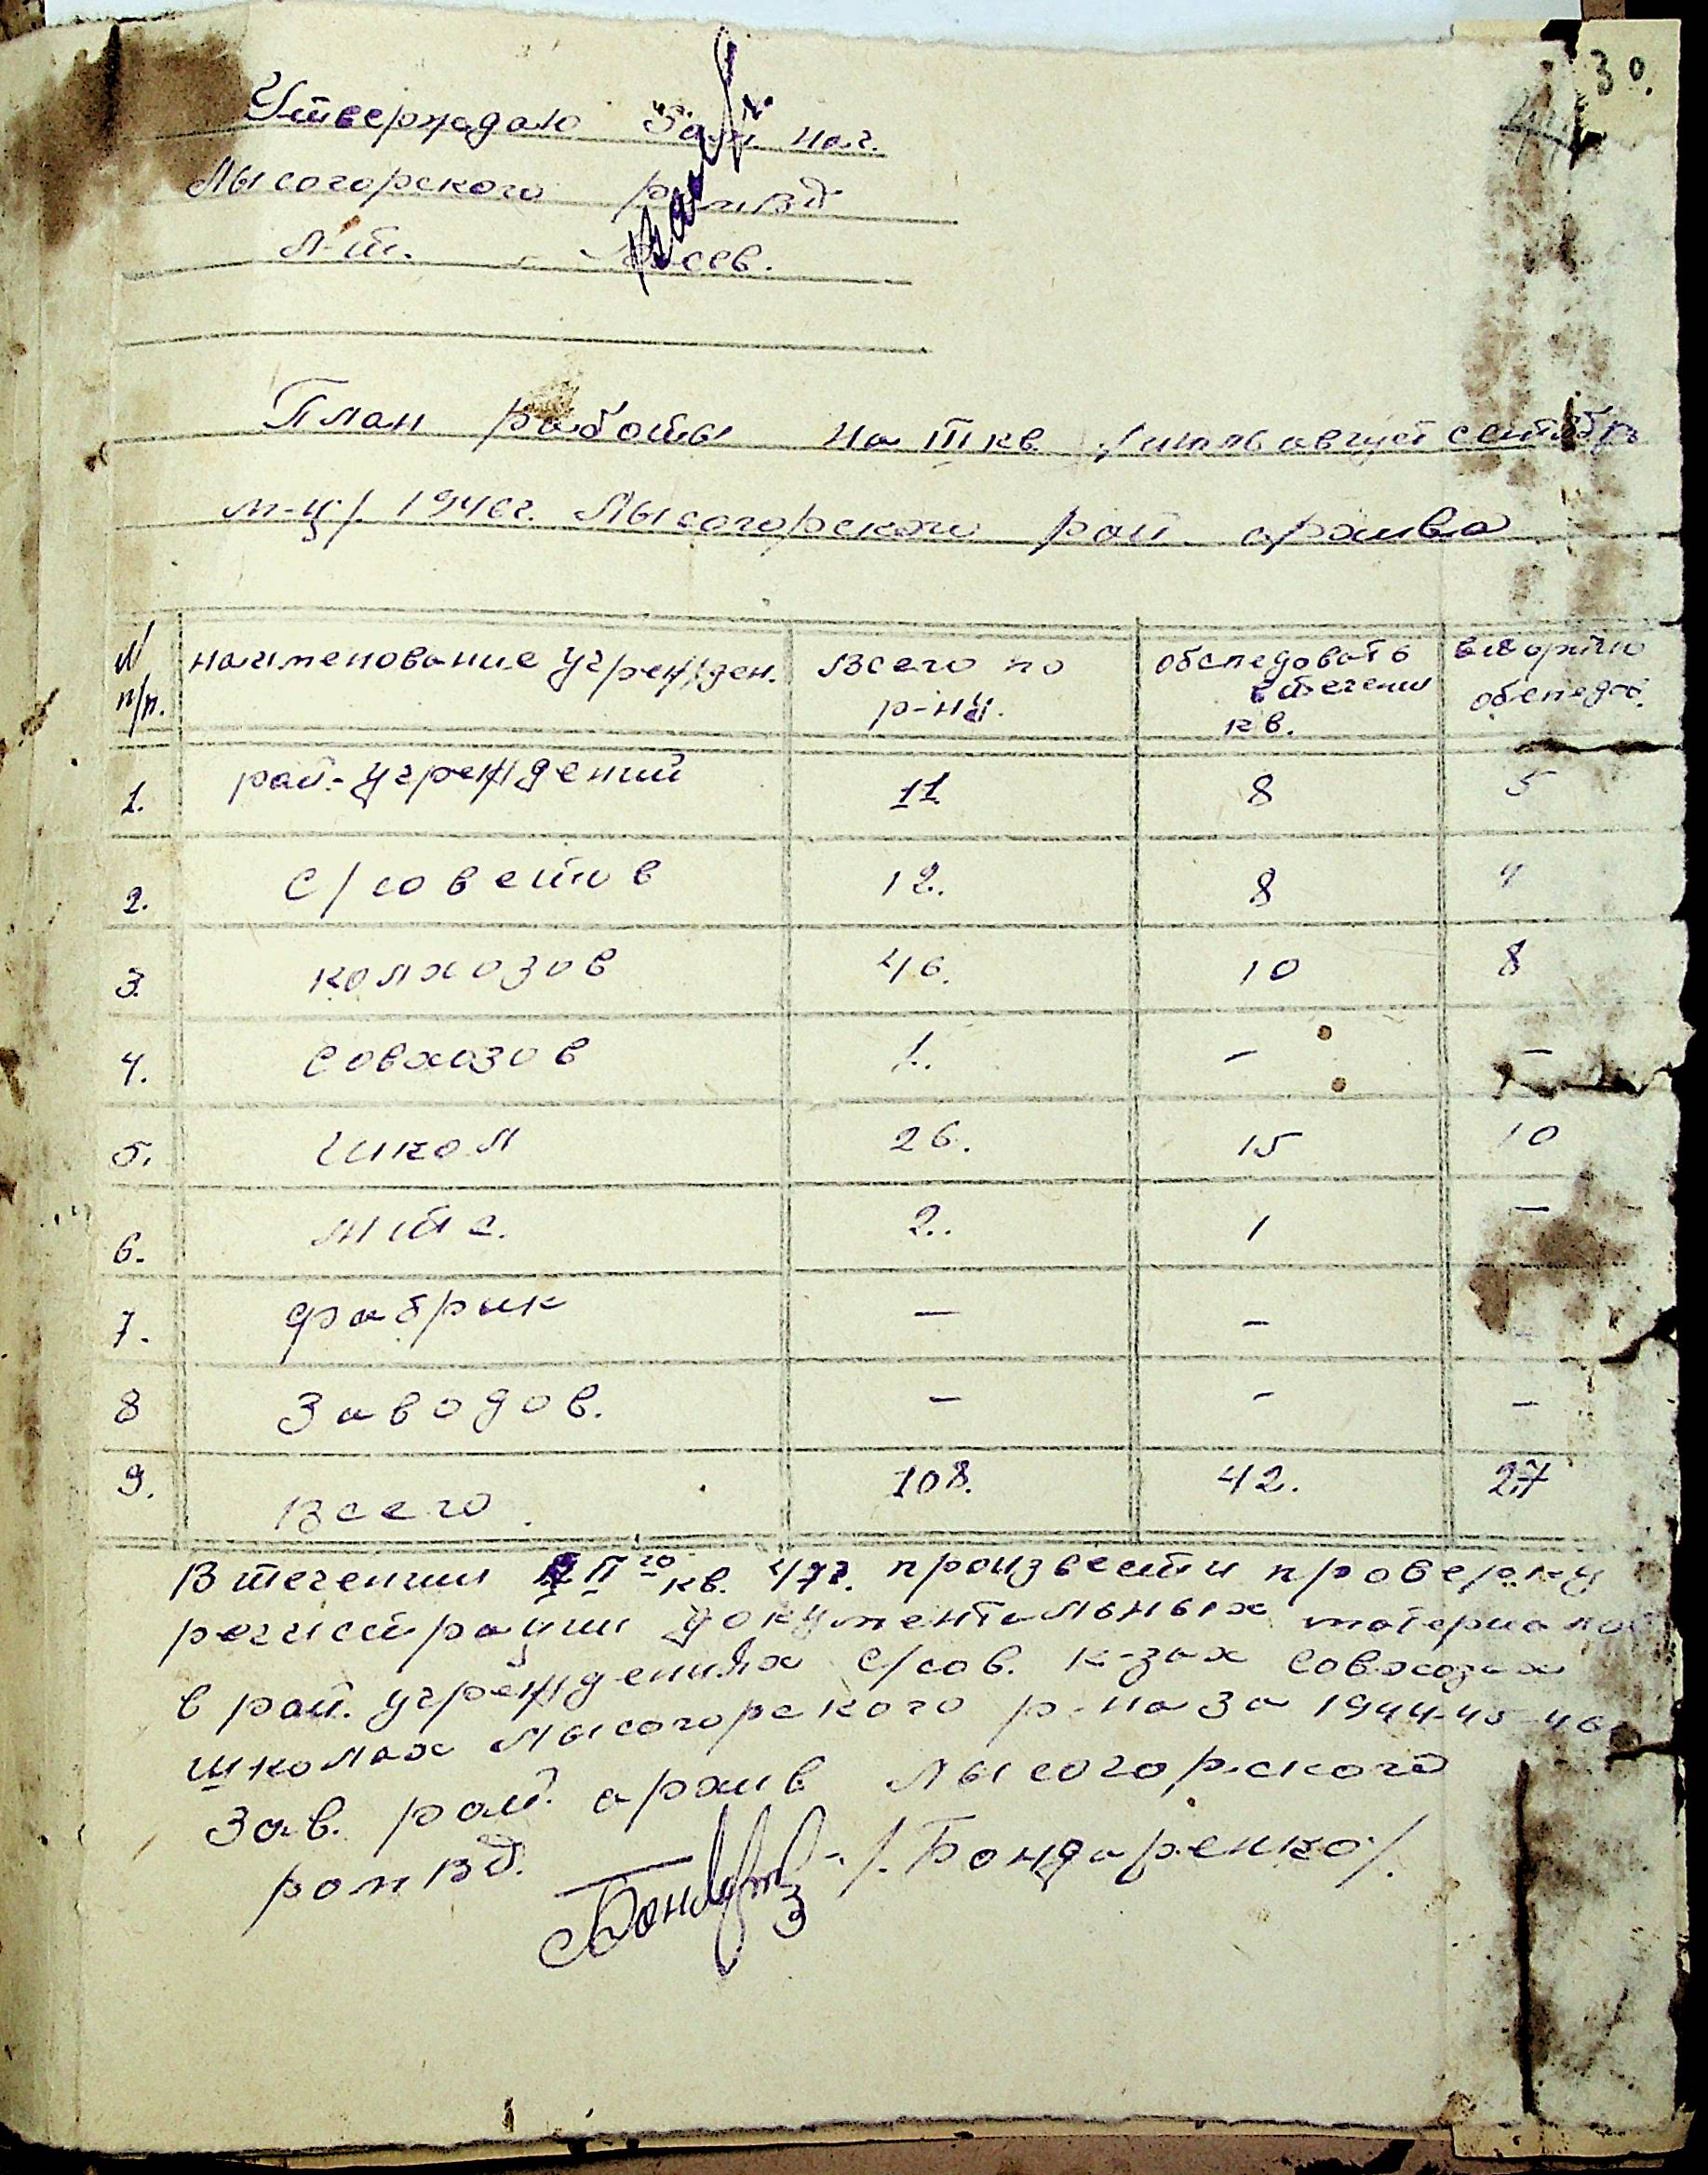 30.
Утверждаю Зам нач.
Лысогорского
л-т.
План работы на III кв /июль август сентябрь
м-ц/. 1946г. Лысогорского рай. архива
N п/п. наименование учрежден. Всего по р-ну. обследовать в течении кв. вторично обследов.
1. рай-учреждений 11. 8 5
2. с/советов 12. 8 4
3. колхозов 46. 10 8
4. совхозов 1. — —
5. школ 26. 15 10
6. МТС. 2. 1 —
7. фабрик — —
8 заводов. — — —
9. Всего. 108. 42. 27
В течении го кв. 47г. произвести проверку
регистрации документальных материалов
в рай. учреждениях с/сов. к-зах совхозах
школах Лысогорского р-на за 1944-45-46г
Зав. рай. архив Лысогорского
РОМВД. /. Бондаренко/.